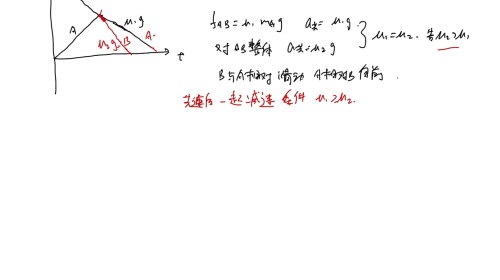 A
μ₂g
B
μ₁g
A
t
f_AB = μ₁ m_B g a共 = μ₁g
对AB整体 a共 = μ₂g
μ₁ = μ₂. 若μ₂>μ₁
B与A相对滑动 A相对B向前.
共速后一起减速 条件 μ₁≥μ₂.